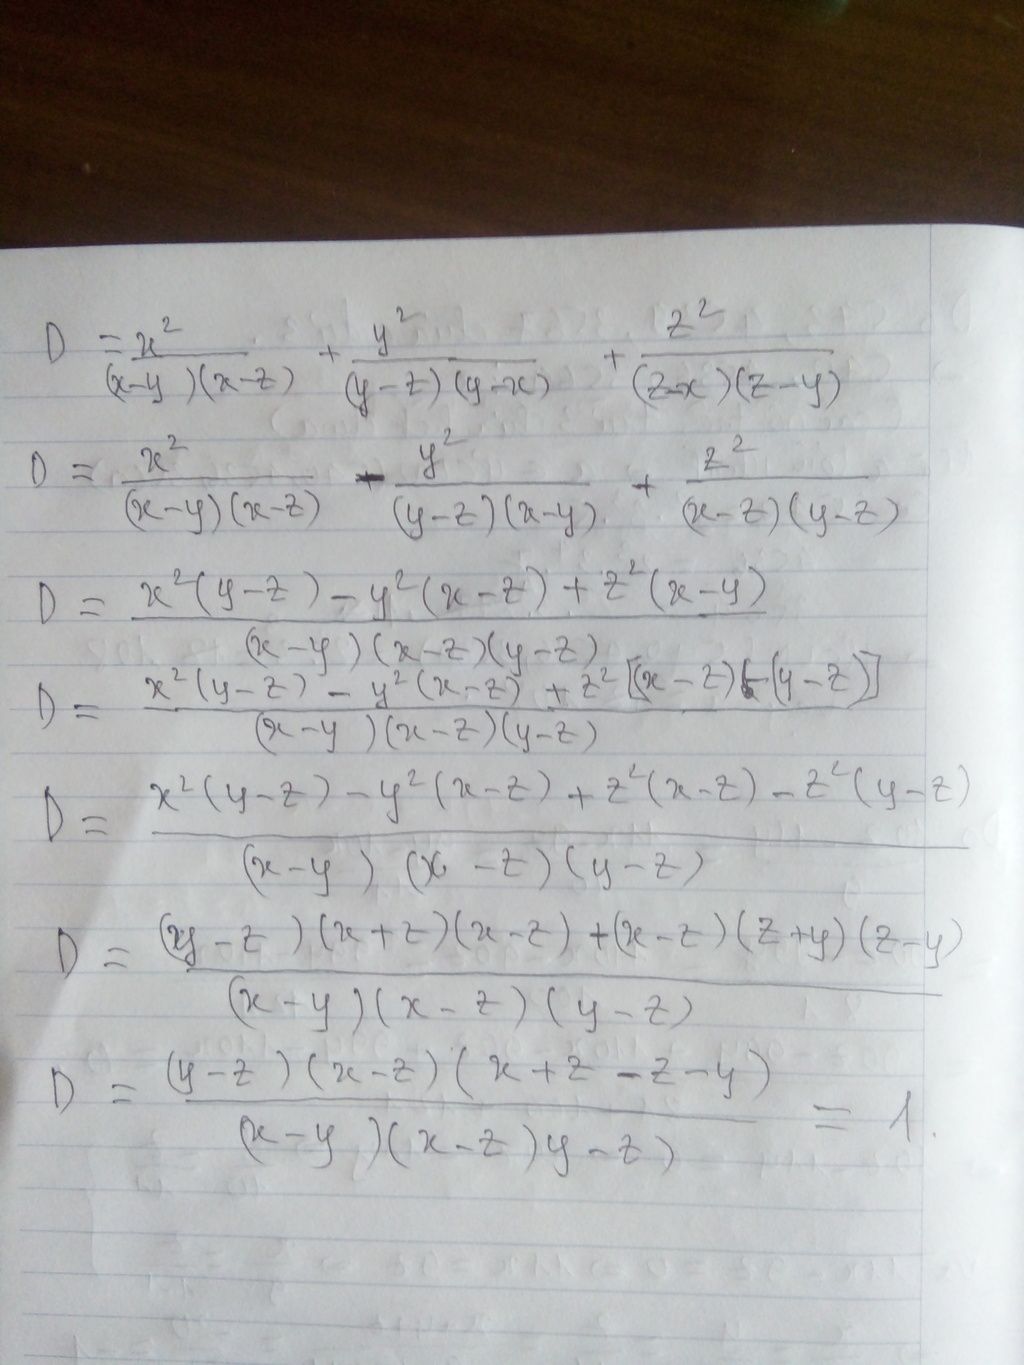 D = x²/((x-y)(x-z)) + y²/((y-z)(y-x)) + z²/((z-x)(z-y))
D = x²/((x-y)(x-z)) - y²/((y-z)(x-y)) + z²/((x-z)(y-z))
D = (x²(y-z) - y²(x-z) + z²(x-y))/((x-y)(x-z)(y-z))
D = (x²(y-z) - y²(x-z) + z²[(x-z)-(y-z)])/((x-y)(x-z)(y-z))
D = (x²(y-z) - y²(x-z) + z²(x-z) - z²(y-z))/((x-y)(x-z)(y-z))
D = ((y-z)(x+z)(x-z) + (x-z)(z+y)(z-y))/((x-y)(x-z)(y-z))
D = ((y-z)(x-z)(x+z-z-y))/((x-y)(x-z)y-z)) = 1.